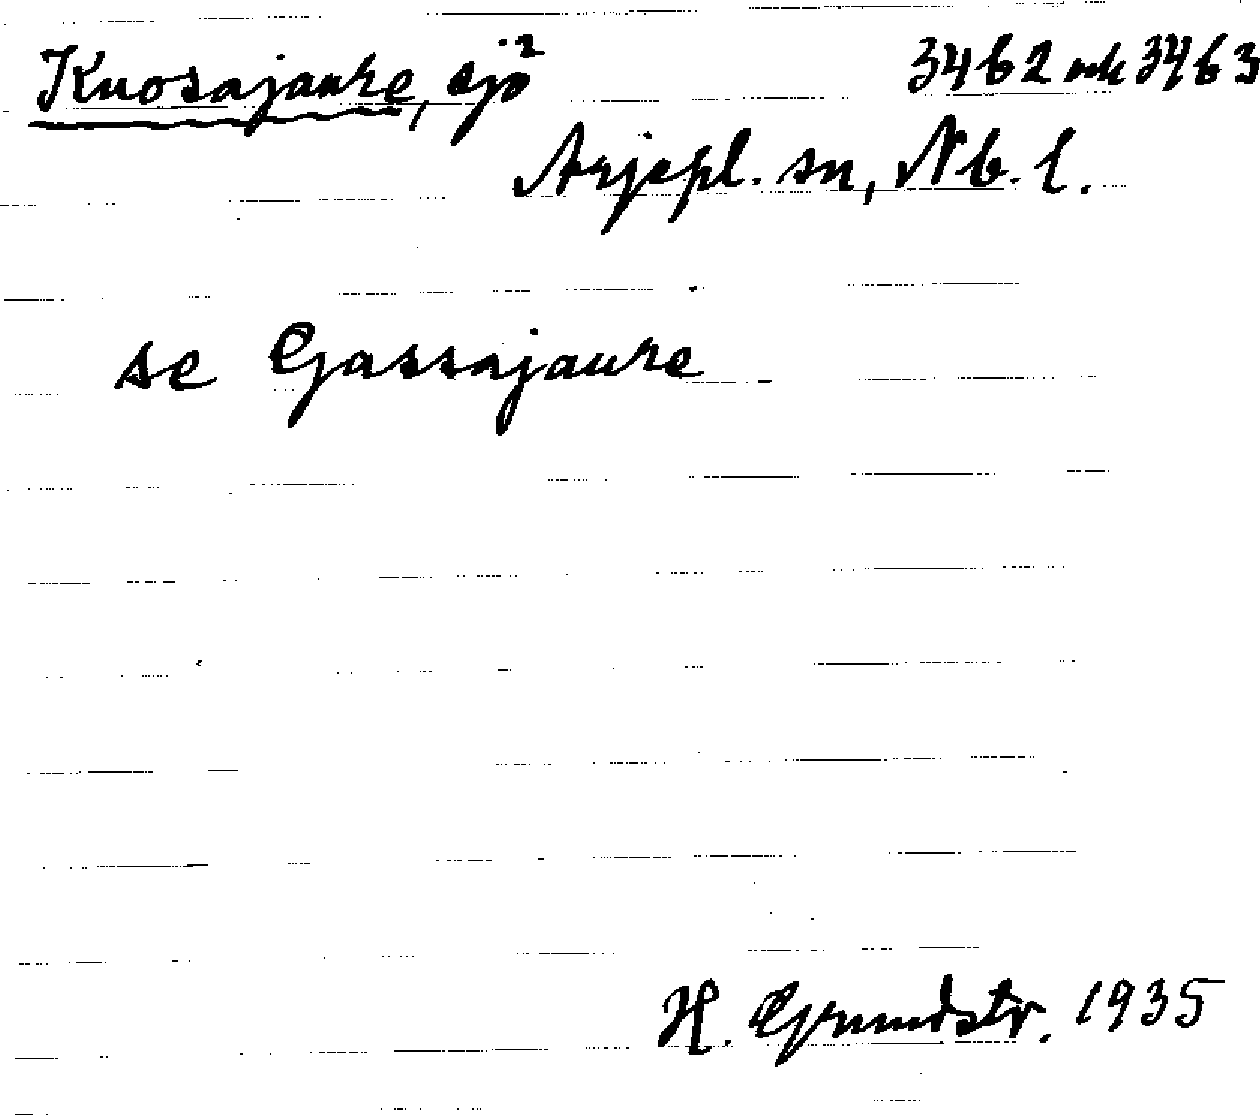 Kuosajaure, sjö 3462 och 3463
Arjepl. sn, Nb. l.
se Gassajaure
H. Grundstr. 1935